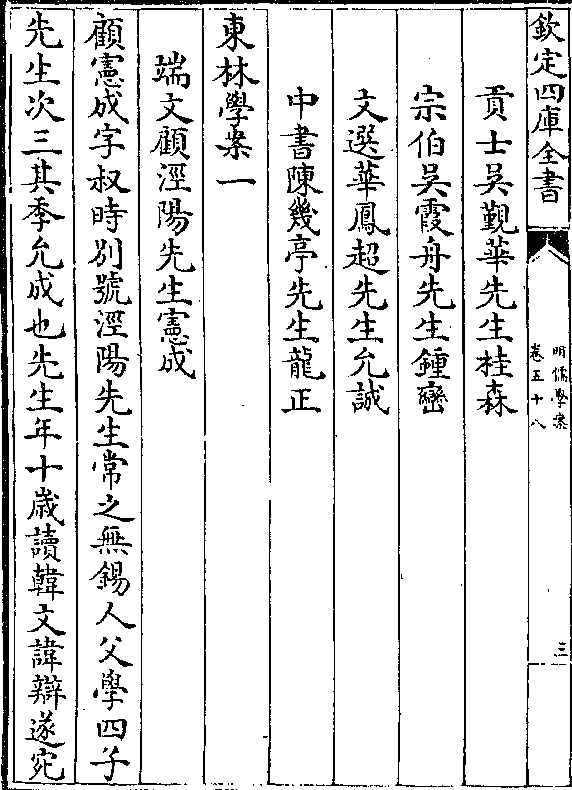 欽定四庫全書
明儒學案
卷五十八
三
貢士吳覲華先生桂森
宗伯吳霞舟先生鍾巒
文選華鳳超先生允誠
中書陳幾亭先生龍正
東林學案一
端文顧涇陽先生憲成
顧憲成字叔時別號涇陽先生常之無錫人父學四子
先生次三其季允成也先生年十歲讀韓文諱辯遂宛